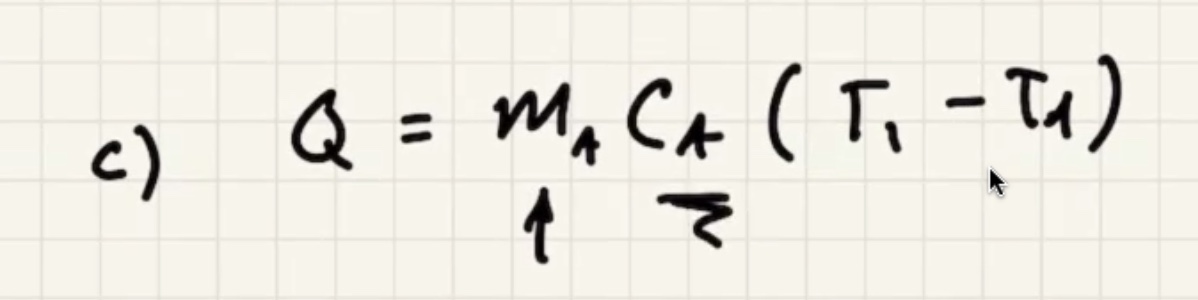 c) Q = m_A C_A ( T_1 - T_A )